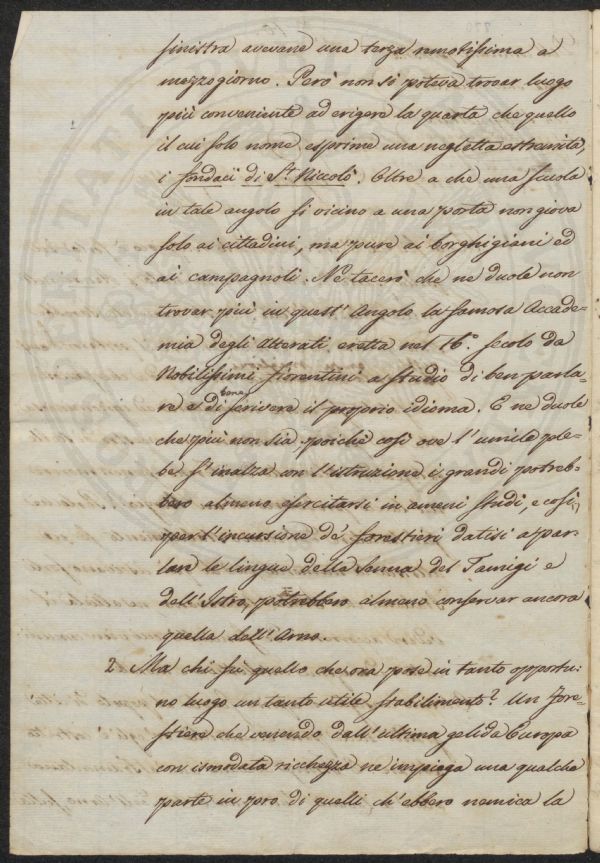 sinistra avevane una terza remotissima a
mezzogiorno. Però non si poteva trovar luogo
più conveniente ad erigere la quarta che quello
il cui solo nome esprime una negletta estremità,
i fondaci di St. Niccolò. Oltre a che una scuola
in tale angolo sì vicino a una porta non giova
solo ai cittadini, ma pure ai borghigiani ed
ai campagnoli. Ne tacerò che ne duole non
trovar più in quest' Angolo la famosa Accade=
mia degli Alterati eretta nel 16.° secolo da
Nobilissimi fiorentini a studio di ben parla=
re e di bene scrivere il proprio idioma. E ne duole
che più non sia, poichè così ove l'umile ple=
be s'inalza con l'istruzione i grandi potreb=
bero almeno esercitarsi in ameni studi, e così
per l'incursione de' forestieri datisi a par=
lare le lingue della Senna del Tamigi e
dell'Istro, potrebbero almeno conservar ancora
quella dell'Arno.
2 Ma chi fu quello che ora pose in tanto opportu=
no luogo un tanto utile stabilimento? Un fore=
stiere che venendo dall'ultima gelida Europa
con ismodata ricchezza ne impiega una qualche
parte in pro di quelli ch'ebbero nemica la